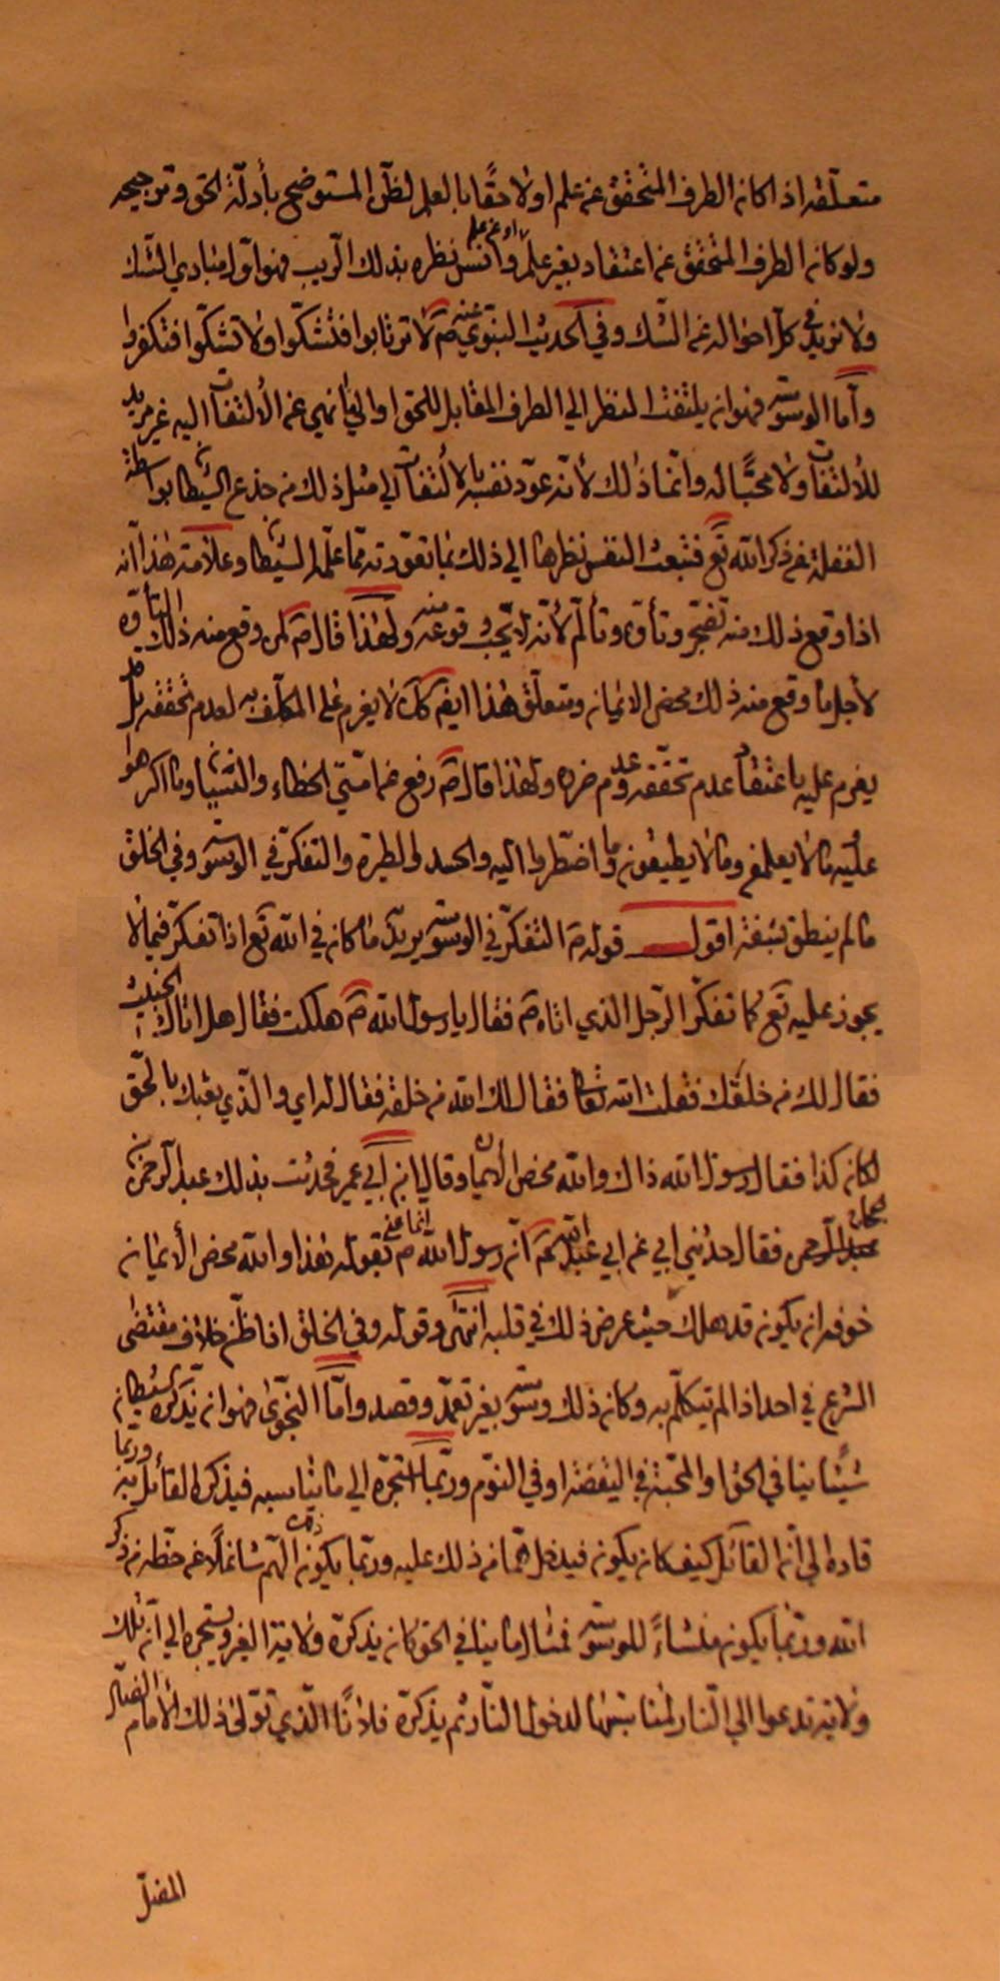 متعلّقه اذا كان الطرف المتحقق عن علم اولاحقًا بالعلم لظنّ المستوضح بأدلّة الحق وتوجيحه
ولو كان الطرف المتحقق عن اعتقاد بغير علم او عن علم وأنس نظره بذلك الريب فهو اوّل مبادي الشك
ولا نريد في كل احواله عن الشك وفي الحديث النبوي عنه صَ لا ترتابوا فتشكّوا ولا تشكّوا فتكفروا
وأما الوسوسة فهو ان يلتفت النظر الي الطرف المقابل للحق او الي ما نهي عن الالتفات اليه غير مريد
للالتفات ولا محبًّا له وانّما ذلك لأنّه عوّد نفسه بالألتفات الي مثل ذلك من خدع الشيطان بواسطة
الغفلة عن ذكر الله تَع فتبعث النفس نظرها الي ذلك بما تعوّدته مما علّمه الشيطان وعلامته هذا انه
اذا وقع ذلك منه تضجّر وتأوّه وتألّم لأنّه لا يحب وقوعه منه ولهذا قال صَ لمن وقع منه ذلك التأوّه
لأجل ما وقع منه ذلك محض الايمان ومتعلّق هذا ايضَ كك لا يغرم على المكلّف به لعدم تحققه بل
يغرم عليه باعتقاد عدم تحققه وعدم ضره ولهذا قال صَ رفع عن امّتي الخطاء والنسيان وما اكرهوا
عليه ما لا يعلمون وما لا يطيقون وما اضطروا اليه والحسد والطيرة والتفكرّ في الوسوسة وفي الخلق
ما لم ينطق بشفة اقول قوله صَ التفكرّ في الوسوسة يريد ما كان في الله تَع اذا تفكرّ فيما لا
يجوز عليه تَع كما تفكّر الرّجل الذي اتاه صَ فقال يا رسول الله صَ هلكت فقال هل اتاك الخبيث
فقال لك من خلقك فقلت الله تعالى فقال لك الله من خلقه فقال له اي والّذي بعثك بالحقّ
لكان كذا فقال رسول الله ذاك والله محض الايمان وقال ابن ابي عمير فحدثت بذلك عبد الرحمن بن
الحجاج فقال حدثني ابي عن ابي عبد الله عَ انّ رسول الله صَ انما عني بقوله هذا والله محض الأيمان
خوفه ان يكون قد هلك حيث عرض ذلك في قلبه انتهى وقوله وفي الخلق اذا ظنّ خلاف مقتضى
الشرع في احد اذا لم يتكلّم به وكان ذلك وسوسة بغير تعمّد وقصد وامّا النجوى فهو ان يذكره الشيطان
شيئًا ينافي الحق او المحبّة في اليقضة او في النوم وربّما استجرّه الي ما يناسبه فيذكره القائل به وربما
قاده الي انّ القائل كيف كان يكون فيدخل همّا من ذلك عليه وربّما يكون ذلك الهم شاغلًا عن حظه من ذكر
الله وربّما يكون منشاءً للوسوسة فمثال ما ينافي الحق كان يذكرّه ولاية الغير ويستجره الي انّ تلك
ولاية تدعوا الي النار لمناسبتها لدخول النار ثم يذكرّه فلانًا الّذي تولّى ذلك الأمام الضال
المضلّ